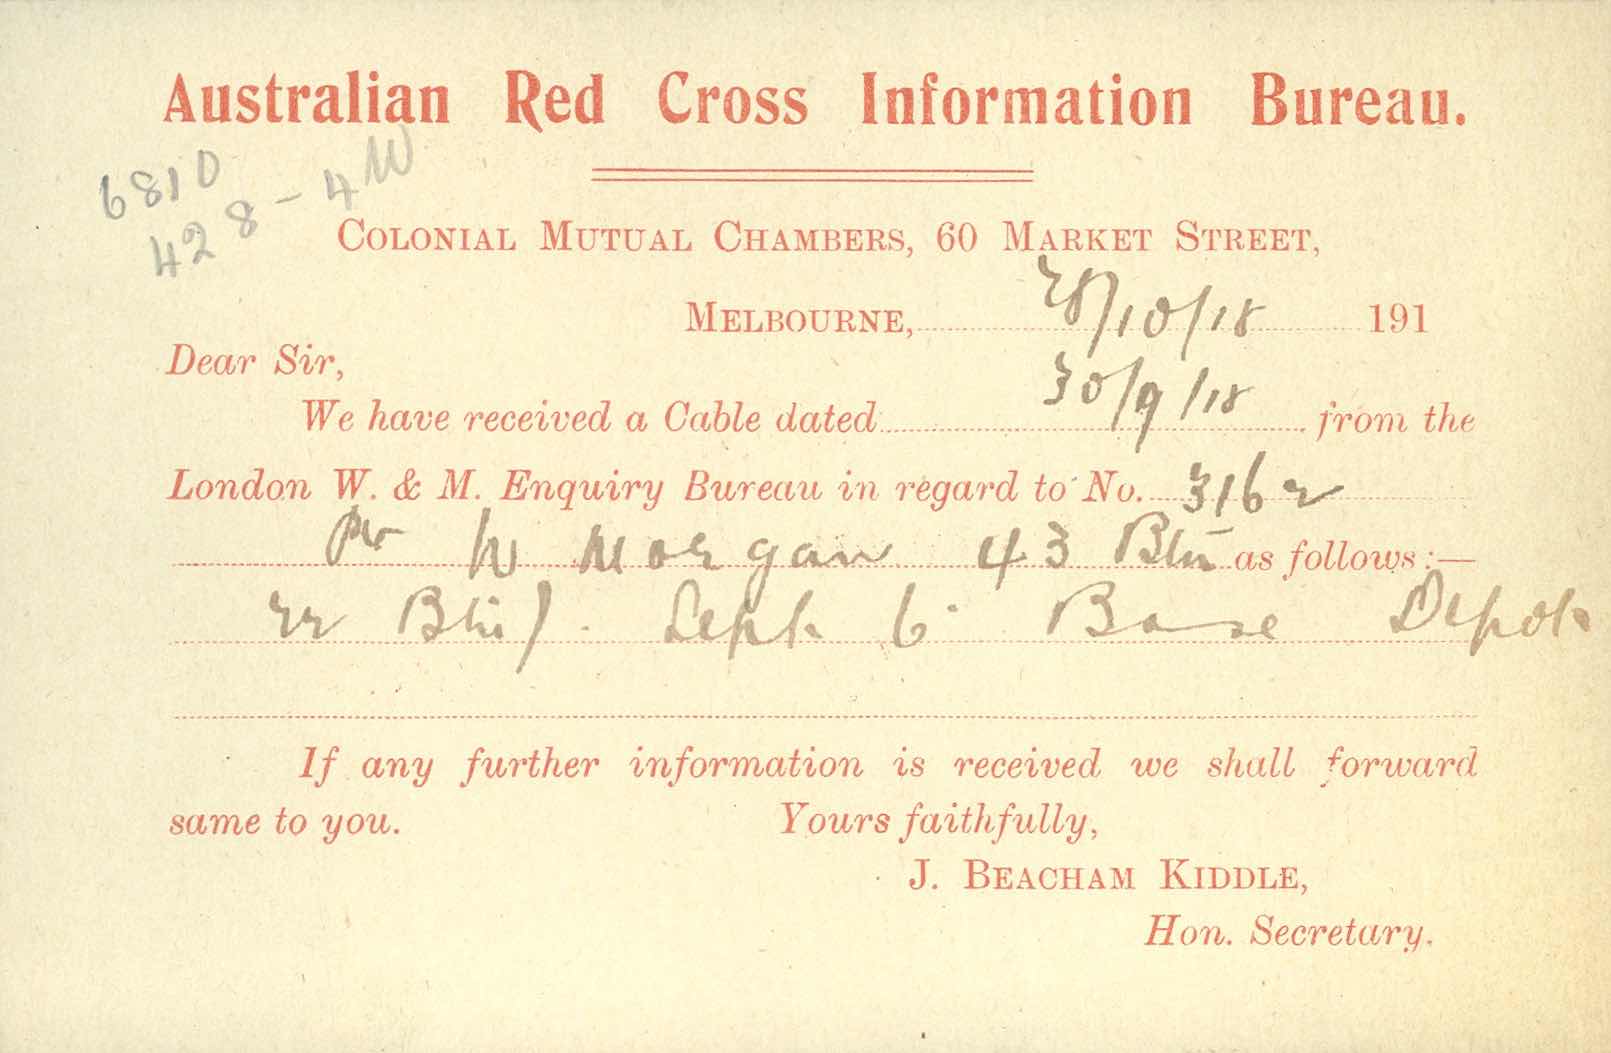 Australian Red Cross Information Bureau.
6810
428-4W
COLONIAL MUTUAL CHAMBERS, 60 MARKET STREET,
MELBOURNE, 28/10/18 191
Dear Sir,
We have received a Cable dated 30/9/18 from the
London W. & M. Enquiry Bureau in regard to No. 3162
Pte W Morgan 43 Btn as follows:—
Sept 6. Base Depot
If any further information is received we shall forward
same to you. Yours faithfully,
J. BEACHAM KIDDLE,
Hon. Secretary.